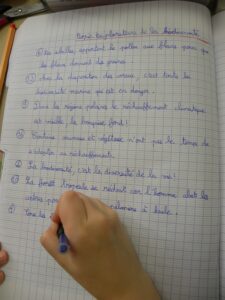 de la biodiversité
Les abeilles apportent le pollen aux fleurs pour que
les fleurs donnent des graines.
Avec la disparition des coraux, c'est toute la
biodiversité marine qui est en danger.
Dans les régions polaires le réchauffement climatique
est visible la banquise fond!
Certains animaux et végétaux n'ont pas le temps de
s'adapter au réchauffement.
La biodiversité, c'est la diversité de la vie!
La forêt tropicale se réduit car l'homme abat les
arbres pour
Tous les